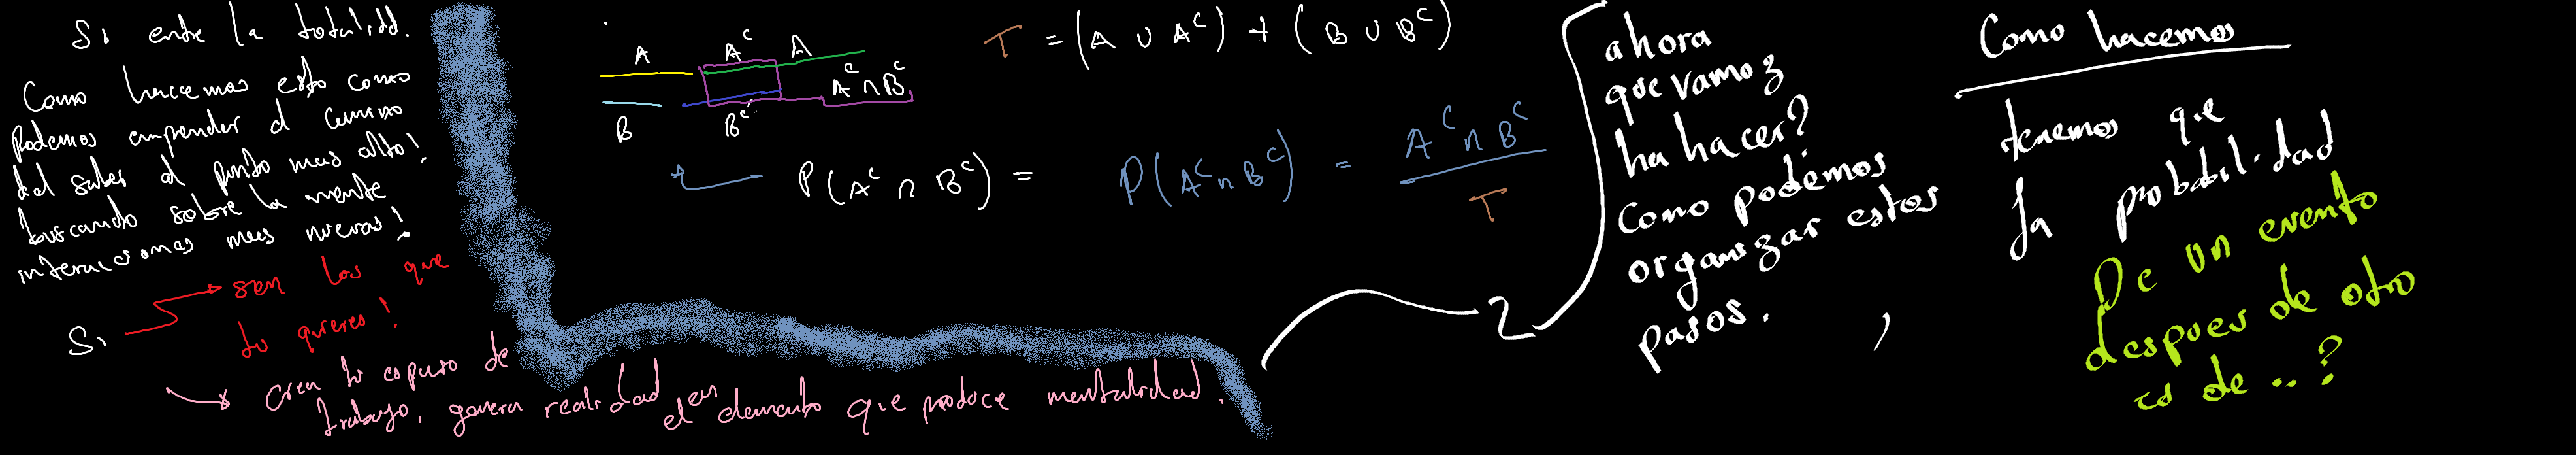 Si entre la totalidd.
Como hacemos esto como
Podemos emprender el camino
del saber al punto mas alto!
buscando sobre la mente
internacionas mas nuevas!
Si
sen los que
tu quieres!
Crea tu espacio de
trabajo, genera realidad en
el elemento que produce mentalidad.
A A^c A
A^c ∩ B^c
B B^c
T = (A ∪ A^c) + (B ∪ B^c)
P(A^c ∩ B^c) = P(A^c ∩ B^c) = A^c ∩ B^c / T
2
ahora
que vamos
ha hacer?
Como podemos
organizar estos
pasos.
,
Como hacemos
tenemos que
la probabilidad
De un evento
despues de otro
es de ..?